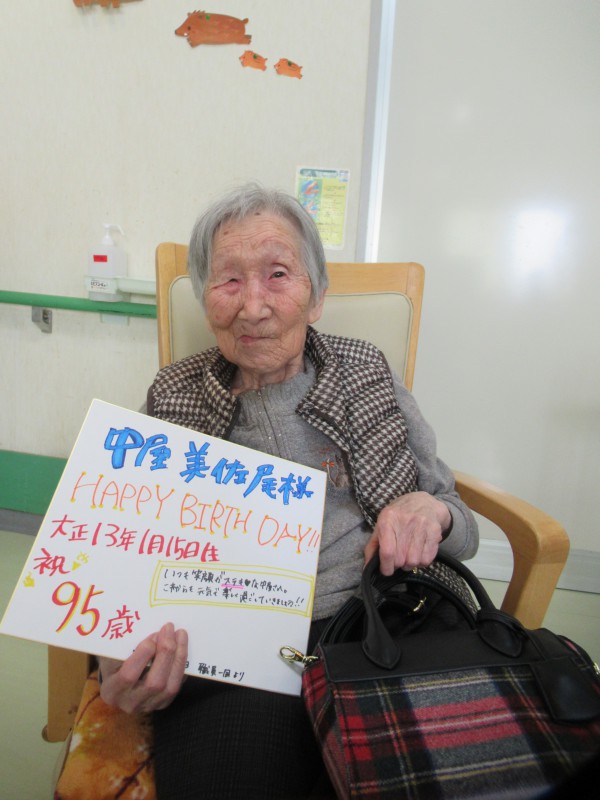 中屋 美佐尾様
HAPPY BIRTH DAY!!
大正13年1月15日生
祝
95歳
いつも笑顔がステキ♥な中屋さん。
これからも元気で楽しく過ごしていきましょう!!
職員一同より